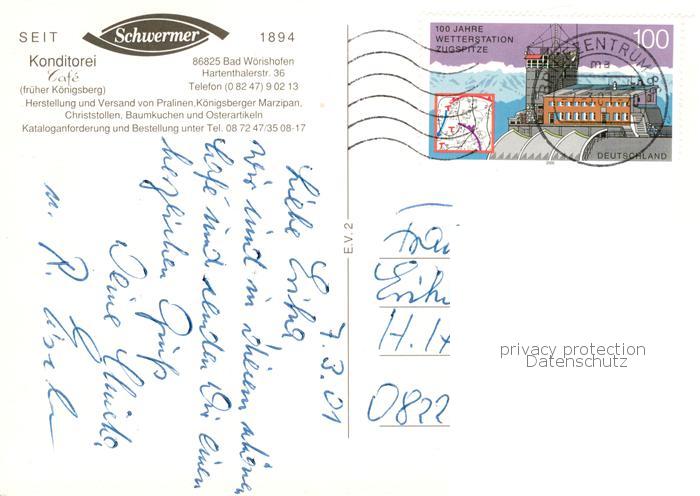 SEIT Schwermer 1894
Konditorei
Café
(früher Königsberg)
86825 Bad Wörishofen
Hartenthalerstr. 36
Telefon (0 82 47) 9 02 13
Herstellung und Versand von Pralinen,Königsberger Marzipan,
Christstollen, Baumkuchen und Osterartikeln
Kataloganforderung und Bestellung unter Tel. 08 72 47/35 08-17
100 JAHRE
WETTERSTATION
ZUGSPITZE
100
DEUTSCHLAND
ZENTRUM
E.V. 2
7.3.01
Liebe Erika
wir sind in diesem schönen
Café und senden Dir einen
herzlichen Gruß
Deine
u. R.
Frau
Erik
H.
0822
privacy protection
Datenschutz